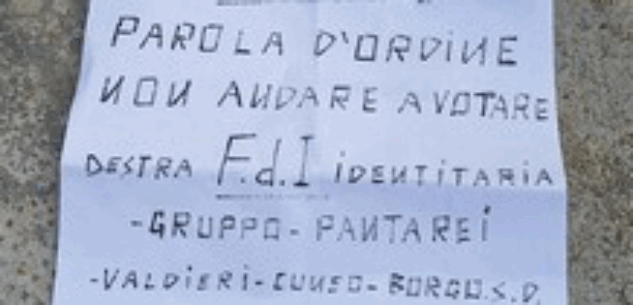 PAROLA D'ORDINE
NON ANDARE A VOTARE
DESTRA F.d.I IDENTITARIA
-GRUPPO- PANTAREI
-VALDIERI-CUNEO-BORGO.S.D